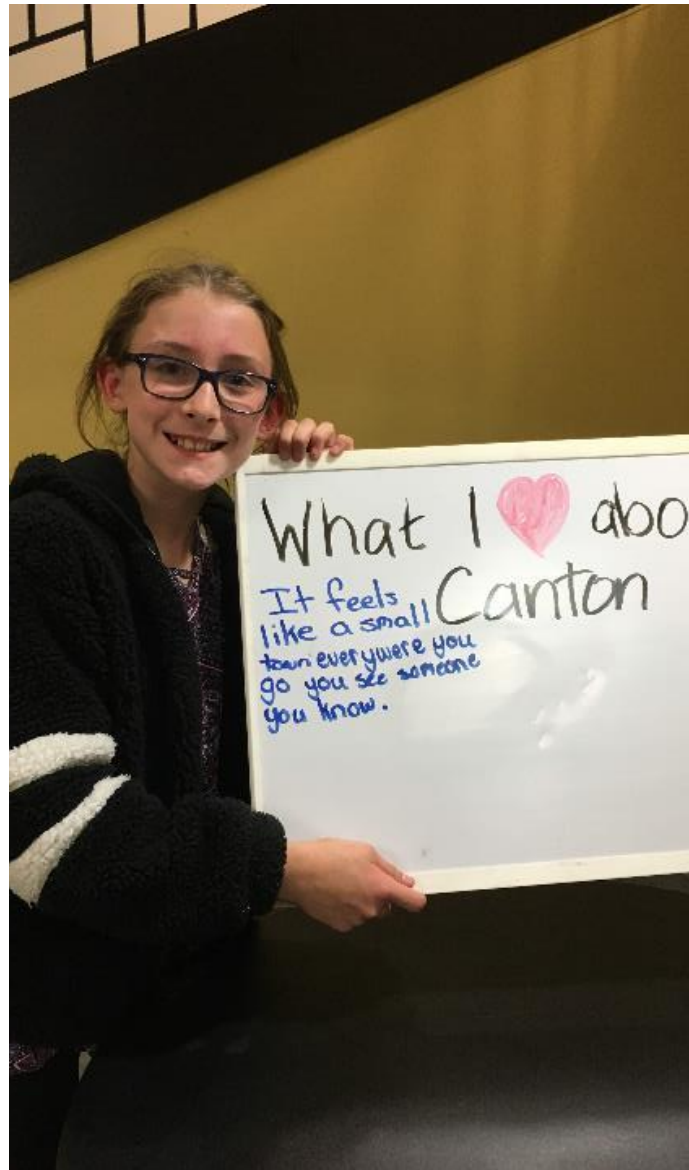 What I ❤ abo
Canton
It feels
like a small
town everywere you
go you see someone
you know.